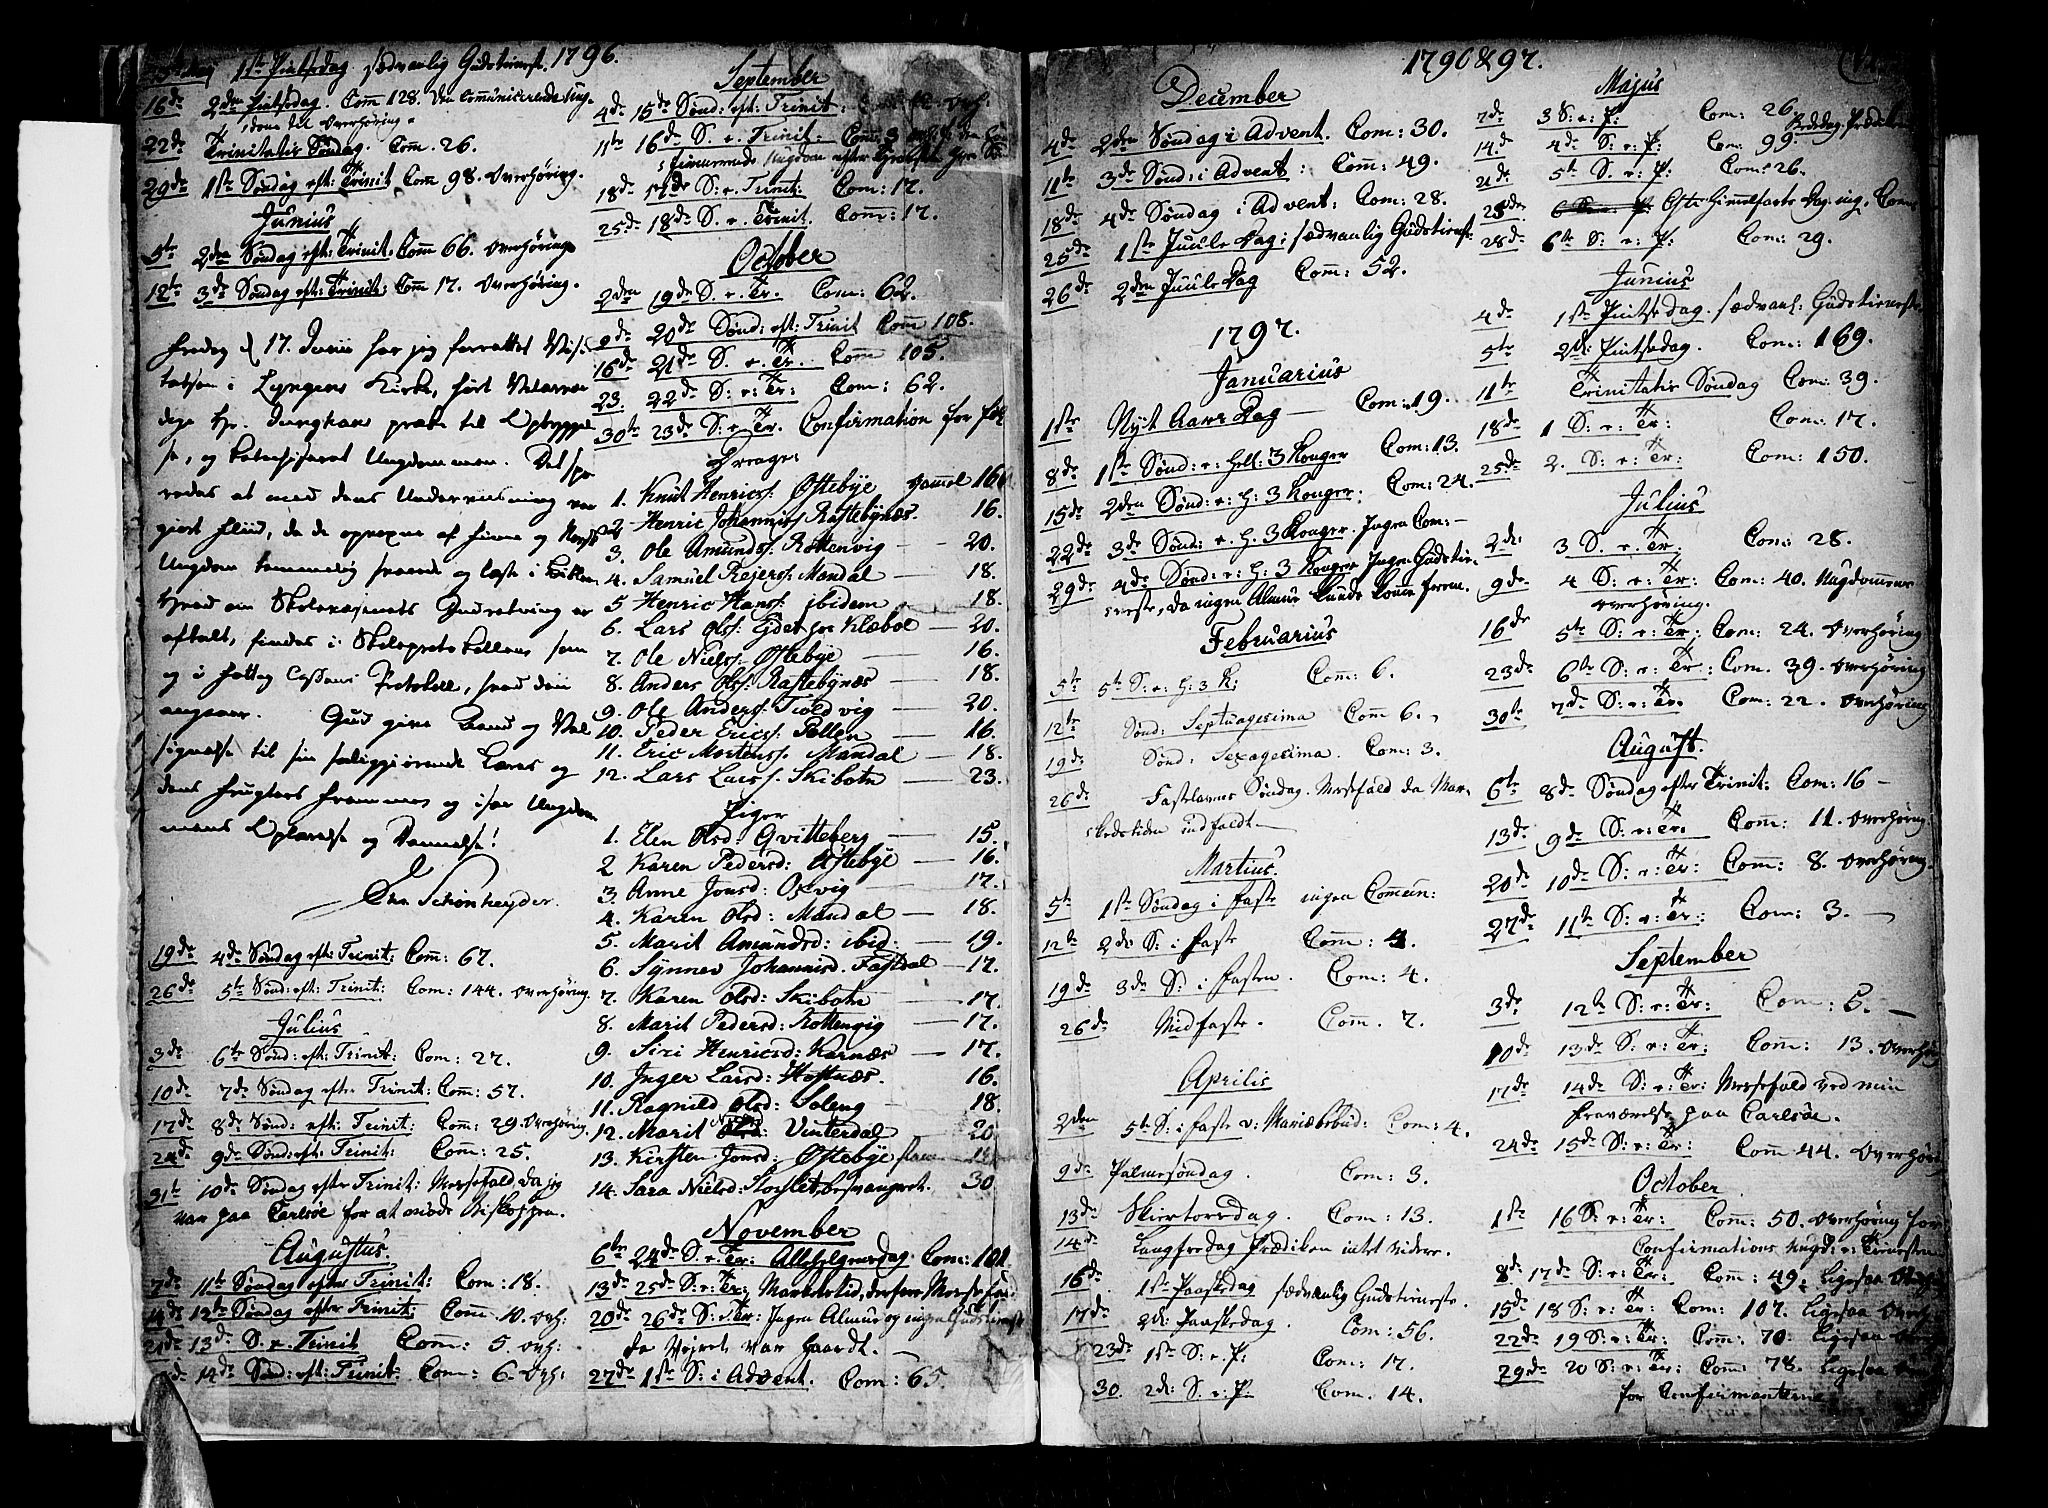 1796.
1ste Pintsedag sædvanlig Gudstieneste.
16de 2den Pintsedag. Com̄ 128. den Communicerende Ung-
dom til Overhøring.
22de Trinitatis Søndag. Com̄. 26.
29de 1ste Søndag eft: Trinit Com̄ 98. Overhøring.
Junius
5te 2den Søndag eft: Trinit: Com̄ 66. Overhøring
12te 3de Søndag eft: Trinit: Com̄ 17. Overhøring.
Fredag d 17. Junii har jeg forrettet Visi
tatsen i Lyngens Kirke, hørt Velærvær
dige Hr. Junghans præke til Opbyggel
se, og katechiseret Ungdommen. Det spo
redes at med dens Underviisning var
giort Fliid, da de opvoxne af Finne og Norsk
Ungdom temmelig svarede og læste i
Hvad om Skolevæsenets Indretning er
aftalt, findes i Skoleprotokollens som
og i Fattig Cassens Protokoll, hvad den
angaaer. Gud give Naade og Vel
signelse til sin saliggiørende Læres og
dens Frugters Fremme og især Ungdom
mens Oplærelse og Dannelse!
Schönheyder.
19de 4de Søndag eft: Trinit: Com̄: 67.
26de 5te Sønd: eft: Trinit: Com: 144. Overhøring.
Julius
3de 6te Sønd: eft: Trinit: Com: 27.
10de 7de Søndag efter Trinit: Com̄: 57.
17de 8de Sønd: eft: Trinit: Com̄: 29. Overhøring.
24de 9de Sønd: eft: Trinit: Com̄: 25.
31te 10de Søndag efter Trinit: Messefald, da jeg
var paa Carlsøe for at møde Biskoppen.
Augustus.
7de 11te Søndag efter Trinit: Com: 18.
14de 12te Søndag efter Trinit: Com̄. 10. Ovh:
21de 13de S. e. Trinit Com̄: 5. Ovh:
14de Sønd: eft: Trinit: Com: 6. Ovh:
September
4de 15de Sønd: eft: Trinit: Ovh:
11te 16de S. e. Trinit: Com̄: 3
18de 17de S: e. Trinit: Com: 17.
25de 18de S. e. Trinit. Com̄: 17.
October
2den 19de S. e. Tr. Com: 62.
9de 20de Sønd: eft: Trinit Com̄ 108.
16de 21de S. e. Tr. Com̄ 105.
23. 22de S: e: Tr: Com: 62.
30te 23de S: e: Tr. Confirmation for føl
Drenge:
1. Knut Henricss: Østebye gammel 16
2. Henric Johanniss Rastebynæs. 16.
3. Ole Amunds: Rottenvig — 20.
4. Samuel Rejerss: Mandal — 18.
5 Henric Hanss: ibidem — 18.
6. Lars Olss: Ejdet hos Klæboe — 20.
7. Ole Nielss: Østebye — 16.
8. Anders Olss: Rastebynæs — 18.
9. Ole Anderss: Tioldvig — 20.
10. Peder Ericss: Pollen — 16.
11. Eric Mortenss. Mandal — 18.
12. Lars Larss. Skibotn — 23.
Piger
1. Elen Olsd: Qvitteberg — 15.
2 Karen Pedersd: Østebye — 16.
3. Anne Jonsd: Oxvig — 17.
4. Karen Olsd: Mandal — 18.
5. Marit Amundsd: ibid: — 19.
6. Synnev Johannisd. Fastdal — 17.
7. Karen Olsd: Skibotn — 17.
8. Marit Pedersd: Rottenvig — 17.
9. Siri Henricsd: Karnæs — 17.
10. Inger Larsd: Hostnæs. 16.
11. Ragnild Olsd: Soleng — 18.
12. Marit Vinterdal 20
13. Kirsten Jonsd: Østebye
14. Sara Nielsd: Storslet, besvangret. 30
November
6te 24de S. e. Tr: Allehelgensdag. Com: 101
13de 25de S: e: Tr: Markestid, derfore Messefald
20de 26de S: e. Tr: Ingen Almue og ingen Gudstieneste
da Vejret var haardt. —
27de 1ste S: i Advent. Com: 65.
1796 & 97.
December
4de 2den Søndag i Advent. Com: 30.
11te 3de Sønd: i Advent: Com̄: 49.
18de 4de Søndag i Advent: Com: 28.
25de 1ste Juule Dag: sædvanlig Gudstienst.
26de 2den Juule Dag Com̄: 52.
1797.
Januarius
1ste Nyt Aars Dag — Com: 19.
8de 1ste Sønd: e: Hell: 3 Konger Com: 13.
15de 2den Sønd: e: H: 3 Konger: Com: 24.
22de 3de Sønd: e. H. 3 Konger. Ingen Com: —
29de 4de Sønd: e: H: 3 Konger Ingen Gudstie-
neste, da ingen Almue kunde komme frem.
Februarius
5te 5te S: e: H: 3 K: Com̄: 6.
12te Sønd: Septuagesima Com̄ 6.
19de Sønd: Sexagesima. Com: 3.
26de Fastelavns Søndag. Messefald da Mar-
kedstiden indfaldt —
Martius.
5te 1ste Søndag i Faste ingen Commun:
12te 2de S: i Faste Com̄: 4.
19de 3de S: i Fasten. Com: 4.
26de Midfaste. Com̄. 7.
Aprilis
2den 5te S: i Faste v: Mariæ bebud: Com: 4.
9de Palmesøndag. Com: 3.
13de Skiertorsdag. Com: 13.
14de Langfredag Prædiken intet videre.
16de 1ste Paaskedag sædvanlig Gudstieneste.
17de 2d: Paaskedag. Com: 56.
23de 1ste S: e. P: Com: 17.
30. 2d: S: e: P. Com: 14.
Majus
7de 3 S: e: P: Com: 26.
14de 4de S: e: P: Com: 99.
21de 5te S. e: P: Com: 26.
25de Christi Himmelfarts Dag. ing. Com̄
28de 6te S: e: P: Com: 29.
Junius
4de 1ste Pintse Dag. sædvanl: Gudstieneste
5te 2d: Pintsedag. Com: 169.
11te Trinitatis Søndag Com: 39.
18de 1 S: e: Tr: Com: 17.
25de 2. S: e: Tr: Com: 150.
Julius
2de: 3 S. e. Tr: Com: 28.
9de 4 S: e: Tr: Com: 40. Ungdommens
Overhøring.
16de 5te S: e: Tr: Com: 24. Overhøring
23de 6te S: e: Tr: Com. 39. Overhøring
30te 7de S: e: Tr. Com: 22. Overhøring
August.
6te 8de Søndag efter Trinit: Com: 16 —
13de 9de S: e: Tr. Com̄: 11. Overhøring:
20de 10de S: e: Tr: Com: 8. Overhøring.
27de 11te S: e: Tr: Com: 3. —
September
3de 12te S: e: Tr: Com: 6. —
10de 13de S: e: Tr: Com̄: 13. Overhøring
17de 14de S: e: Tr: Messefald ved min
Fraværelse paa Carlsøe.
24de 15de S: e: Tr: Com̄ 44. Overhøring
October
1ste 16 S: e: Tr: Com: 50. Overhøring for
Confirmations Ungd: e: Tienesten
8de 17de S: e: Tr: Com̄: 49. Ligesaa
15de 18 S: e: Tr: Com: 107. Ligesaa Overh
22de 19 S: e: Tr: Com̄: 70. Ligesaa
29de 20 S: e: Tr: Com̄: 78. Ligesaa
for Confirmanterne